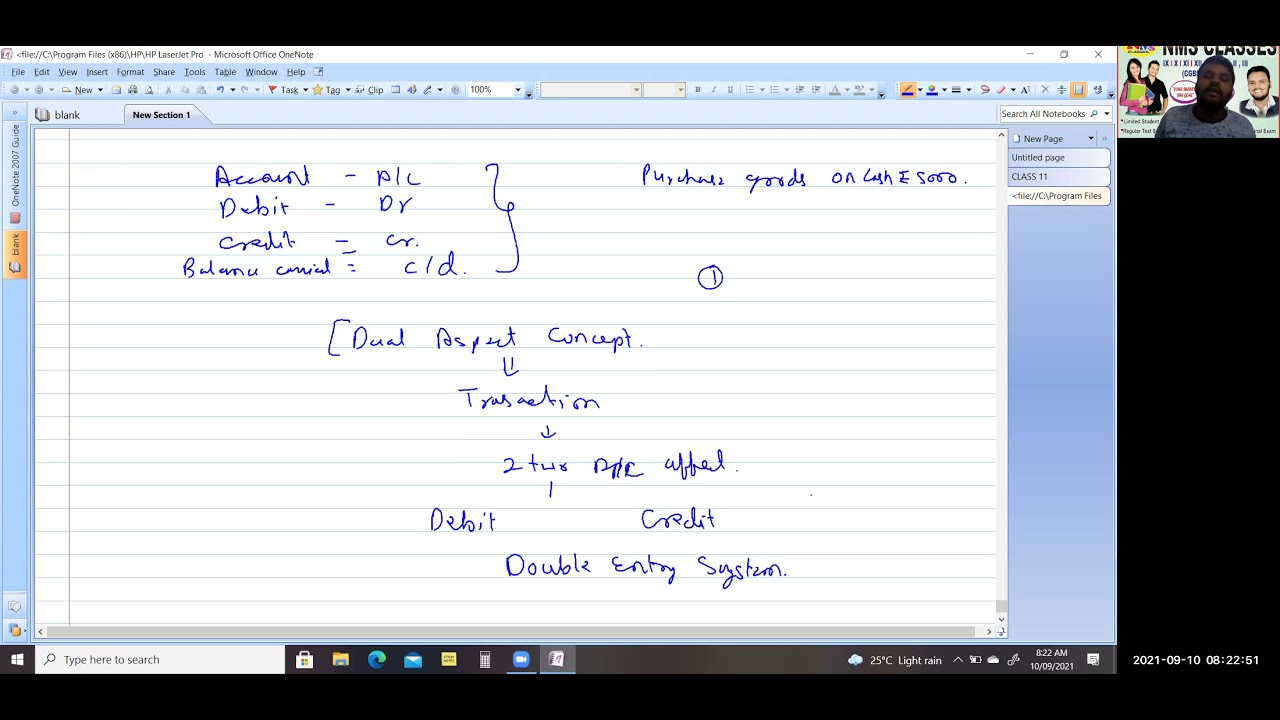 <file://C:\Program Files (x86)\HP\HP LaserJet Pro - Microsoft Office OneNote
File Edit View Insert Format Share Tools Table Window Help
New Task Tag Clip 100%
blank New Section 1 Search All Notebooks
OneNote 2007 Guide
blank
New Page
Untitled page
CLASS 11
<file://C:\Program Files
Account - A/c
Debit - Dr
Credit - Cr.
Balance = c/d.
Purchase goods on Cash 5000.
1
[Dual Aspect Concept.
Trasaction
2 two A/c affect.
Debit Credit
Double Entry System.
Type here to search
25°C Light rain
8:22 AM
10/09/2021
NMS CLASSES
IX I X I XI I XII
(CGBS
*Limited Student
*Regular Test
nal Exam
2021-09-10 08:22:51